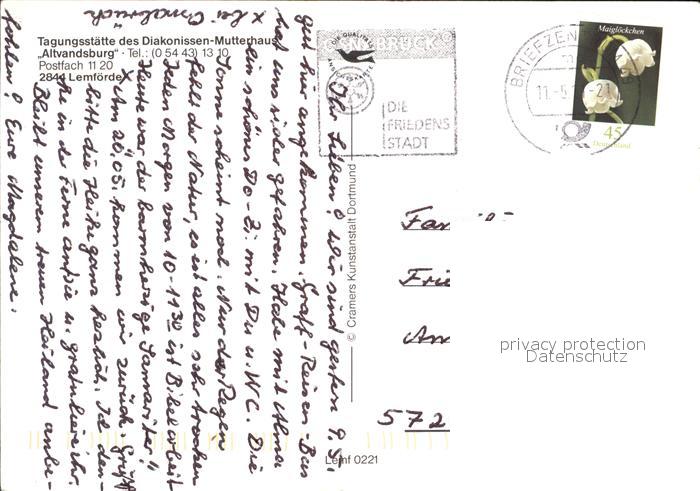 Tagungsstätte des Diakonissen-Mutterhauses
„Altvandsburg" · Tel.: (0 54 43) 13 10
Postfach 11 20
2844 Lemförde
x bei Osnabrück
Ihr Lieben! Wir sind gestern 9.5.
gut hier angekommen. Graf's-Reisen-Bus
hat uns sicher gefahren. Habe mit
ein schönes Do-Zi. mit Du u. WC. Die
Sonne scheint noch. Nur der Regen
fehlt der Natur, es ist alles sehr trocken
Jeden Morgen von 10-11 30 ist Bibelarbeit
Heute war der barmherzige Samariter!
x Am 20.05. kommen wir zurück. Grüßt
bitte die Heike ganz herzlich. Ich den-
ke in der Ferne an sie u. gratuliere ihr.
Bleibt unserem treuen Heiland anbe-
fohlen! Eure Magdalene.
© Cramers Kunstanstalt Dortmund
Lemf 0221
OSNABRÜCK
DIE
FRIEDENS
STADT
BRIEFZEN
11.-5.
-21
Maiglöckchen
45
Deutschland
Fa
Frie
An
572
privacy protection
Datenschutz